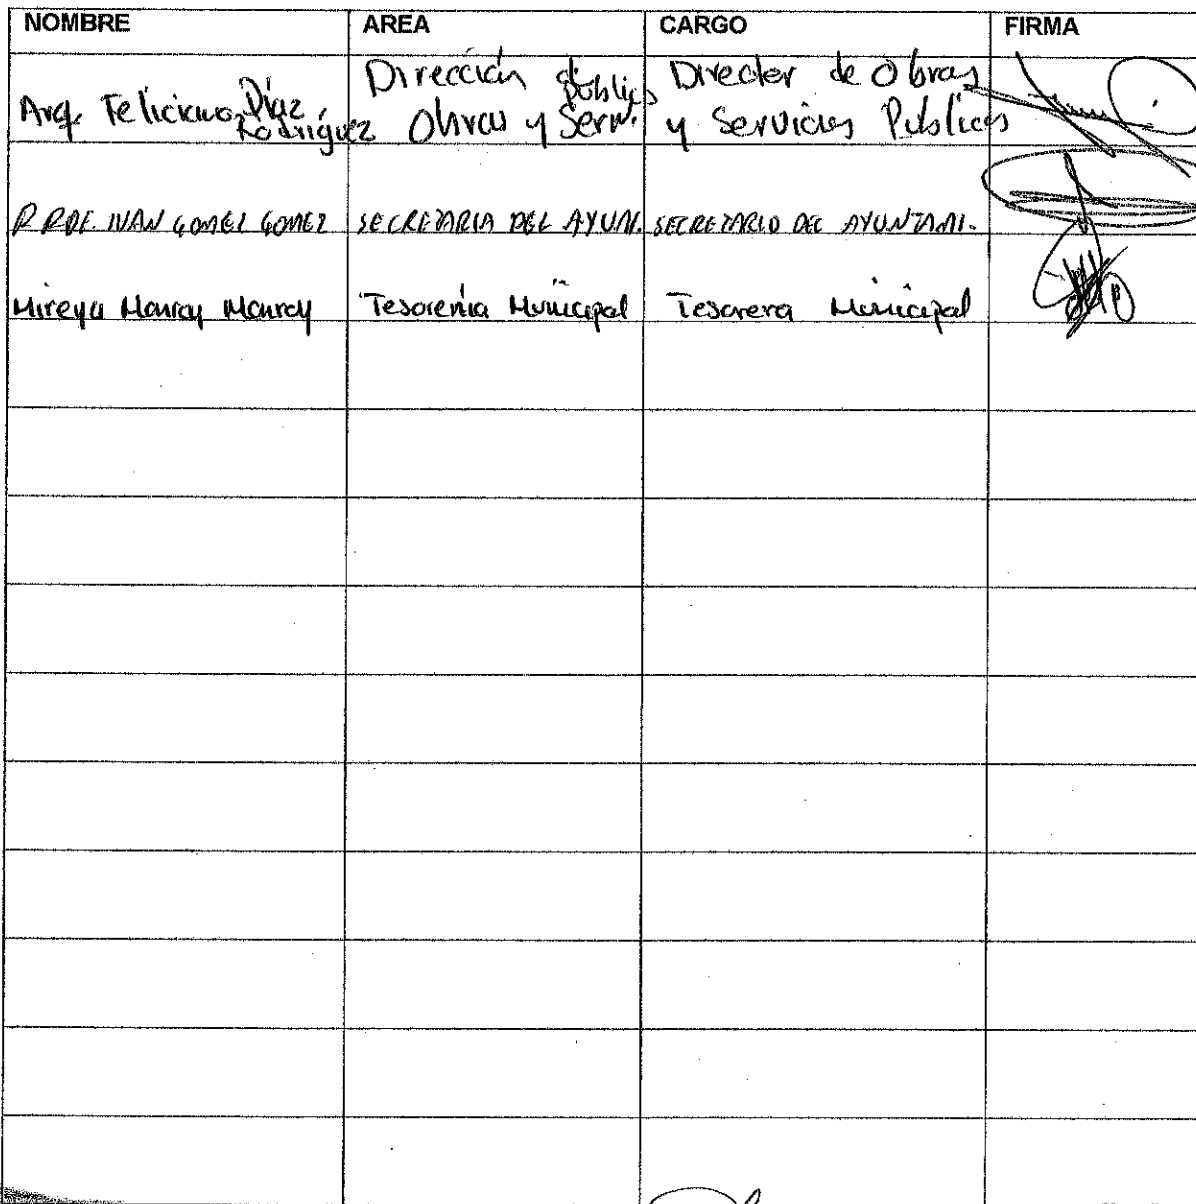 NOMBRE AREA CARGO FIRMA
Arq. Feliciano Díaz Rodríguez
Dirección Obras y Serv. Públics
Director de Obras
y Servicios Publicos
PROF. IVAN GOMEZ GOMEZ SECRETARIA DEL AYUN. SECRETARIO DEL AYUNTAMI.
Mireya Monroy Monroy Tesorería Municipal Tesorera Municipal